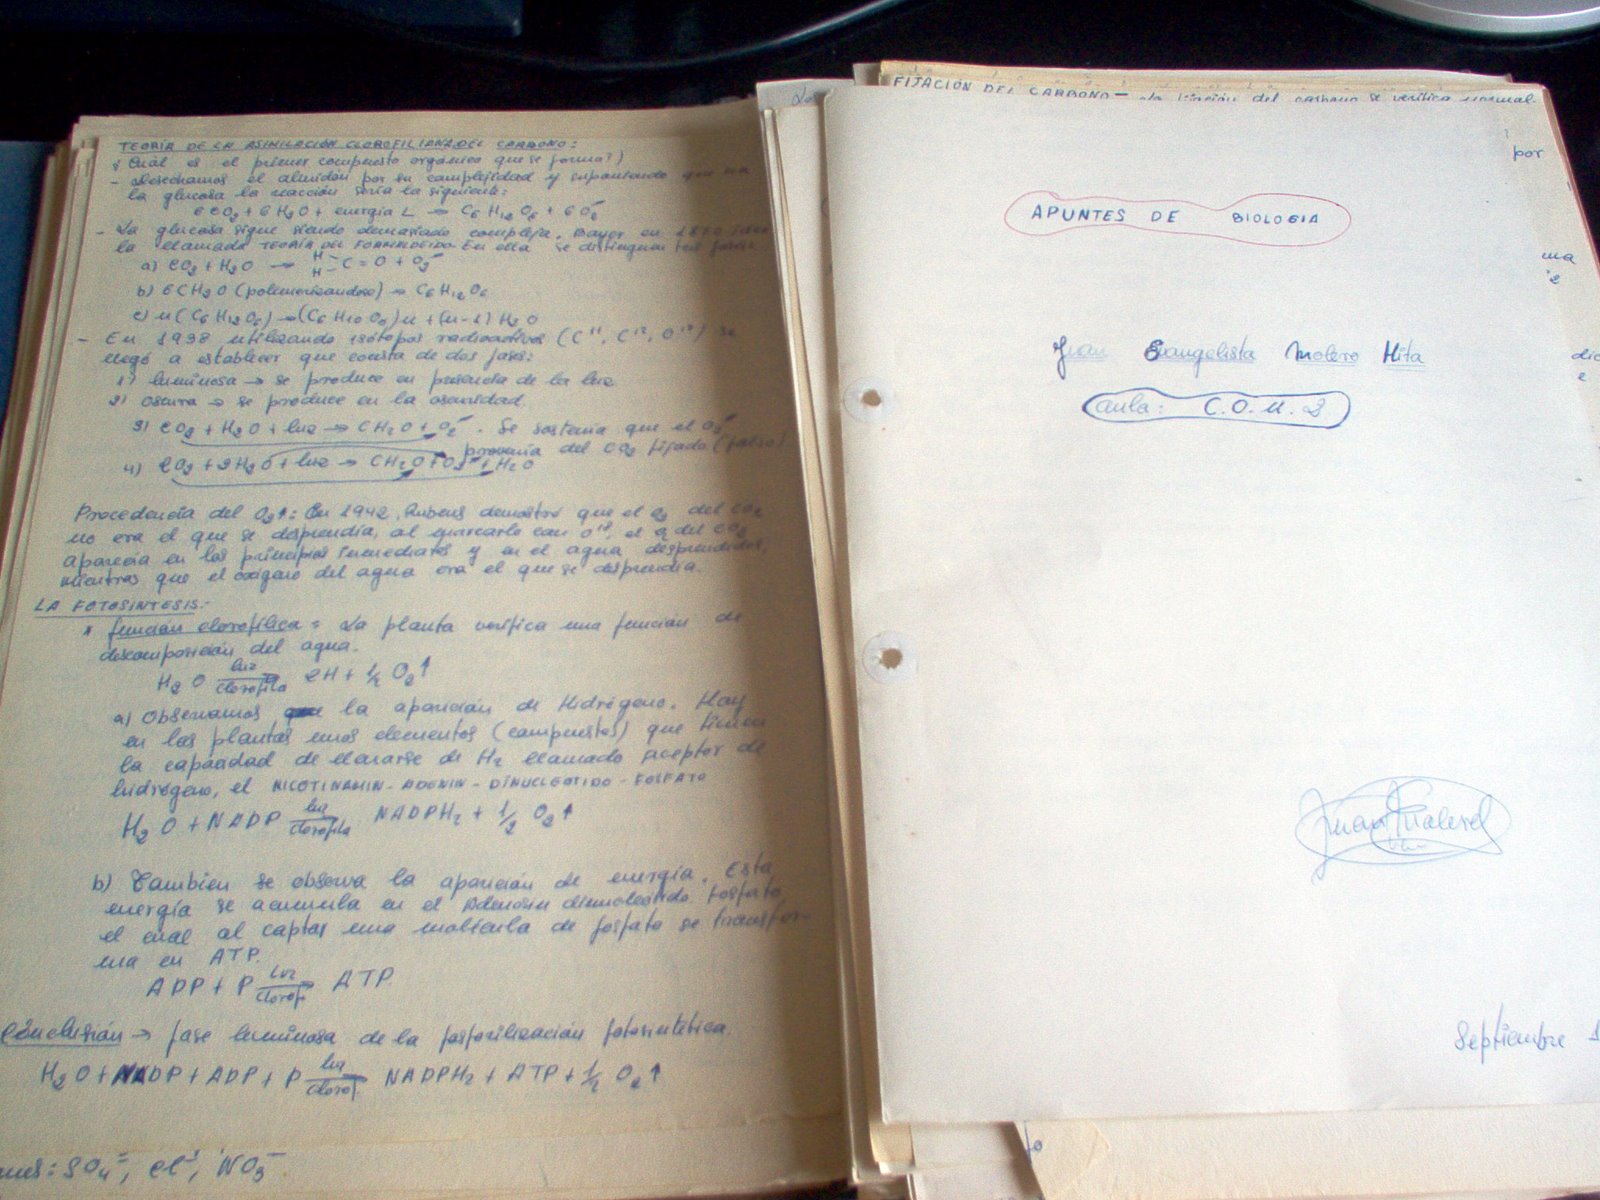 TEORÍA DE LA ASIMILACIÓN CLOROFILIANA DEL CARBONO:
¿Cuál es el primer compuesto orgánico que se forma?)
- Desechamos el almidón por su complejidad y suponiendo que sea
la glucosa la reacción sería la siguiente:
6CO₂ + 6H₂O + energía L → C₆H₁₂O₆ + 6O₂
- La glucosa sigue siendo demasiado compleja. Bayer en 1870
la llamada TEORÍA DEL FORMALDEIDO. En ella se distinguen tres fases:
a) CO₂ + H₂O → H H C=O + O₂
b) 6CH₂O (polimerizandose) → C₆H₁₂O₆
c) n(C₆H₁₂O₆) → (C₆H₁₀O₅)n + (n-1) H₂O
- En 1938 utilizando isótopos radioactivos (C¹¹, C¹², O¹⁸) se
llegó a establecer que consta de dos fases:
1) luminosa → se produce en presencia de la luz
2) oscura → se produce en la oscuridad.
3) CO₂ + H₂O + luz → CH₂O + O₂. Se sostenía que el O₂
provenía del CO₂ fijado (falso)
4) CO₂ + 2H₂O + luz → CH₂O + O₂ + H₂O
Procedencia del O₂↑: En 1942, Rubens demostró que el O₂ del CO₂
no era el que se desprendía, al marcarlo con O¹⁸, el O₂ del CO₂
aparecía en los principios inmediatos y en el agua desprendidos,
mientras que el oxígeno del agua era el que se desprendía.
LA FOTOSINTESIS.-
* función clorofílica = La planta verifica una función de
descomposición del agua.
H₂O luz clorofila 2H + ½ O₂↑
a) Observamos la aparición de Hidrógeno. Hay
en las plantas unos elementos (compuestos) que tienen
la capacidad de llenarse de H₂ llamado aceptor de
hidrógeno, el NICOTINAMIN-ADENIN-DINUCLEOTIDO-FOSFATO
H₂O + NADP luz clorofila NADPH₂ + ½ O₂↑
b) También se observa la aparición de energía. Esta
energía se acumula en el Adenosin dinucleotido fosfato
el cual al captar una molécula de fosfato se transfor-
ma en ATP.
ADP + P Luz clorof. ATP
Conclusión → fase luminosa de la fosforilización fotosintética.
H₂O + NADP + ADP + P luz clorof. NADPH₂ + ATP + ½ O₂↑
SO₄⁼, Cl⁻, NO₃⁻
FIJACIÓN DEL CARBONO - La fijación del carbono se verifica normal-
por
ma
APUNTES DE BIOLOGIA
Juan Evangelista Molero Hita
aula: C.O.U. 2
Septiembre 1